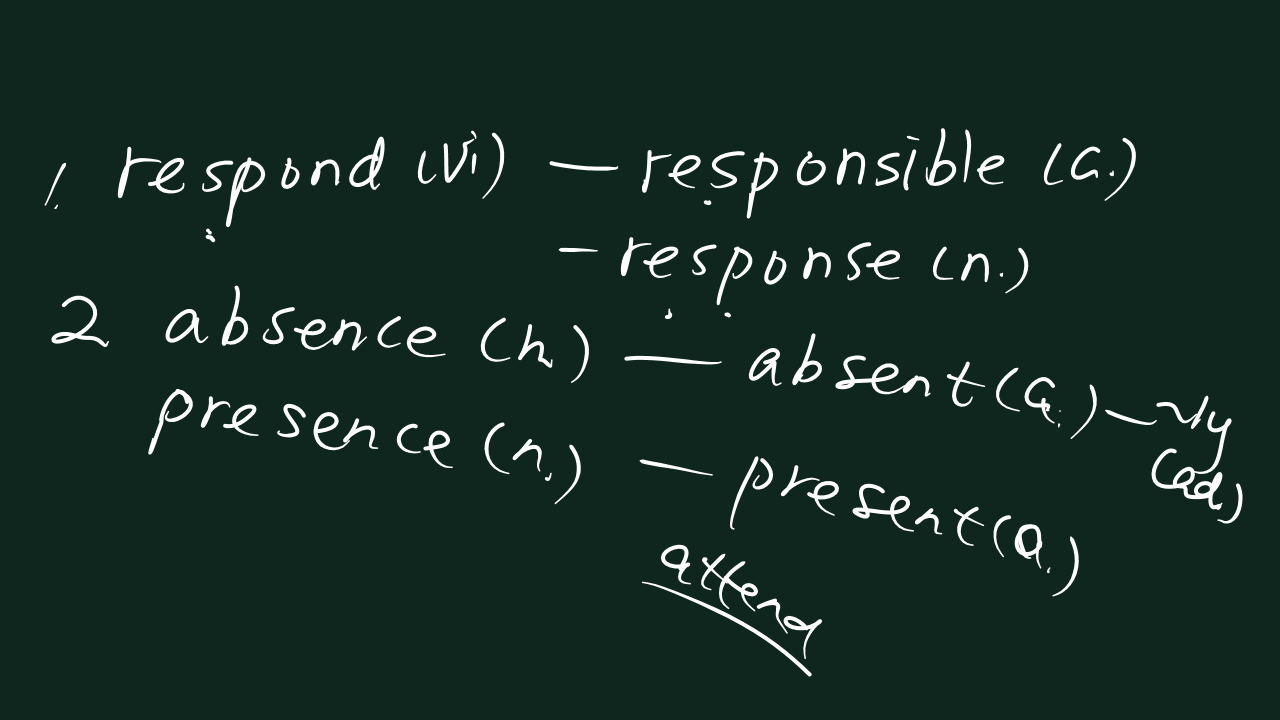 1. respond (vi) — responsible (a.)
– response (n.)
2 absence (n.) — absent (a.) — ~ly (ad.)
presence (n.) — present (a.)
attend